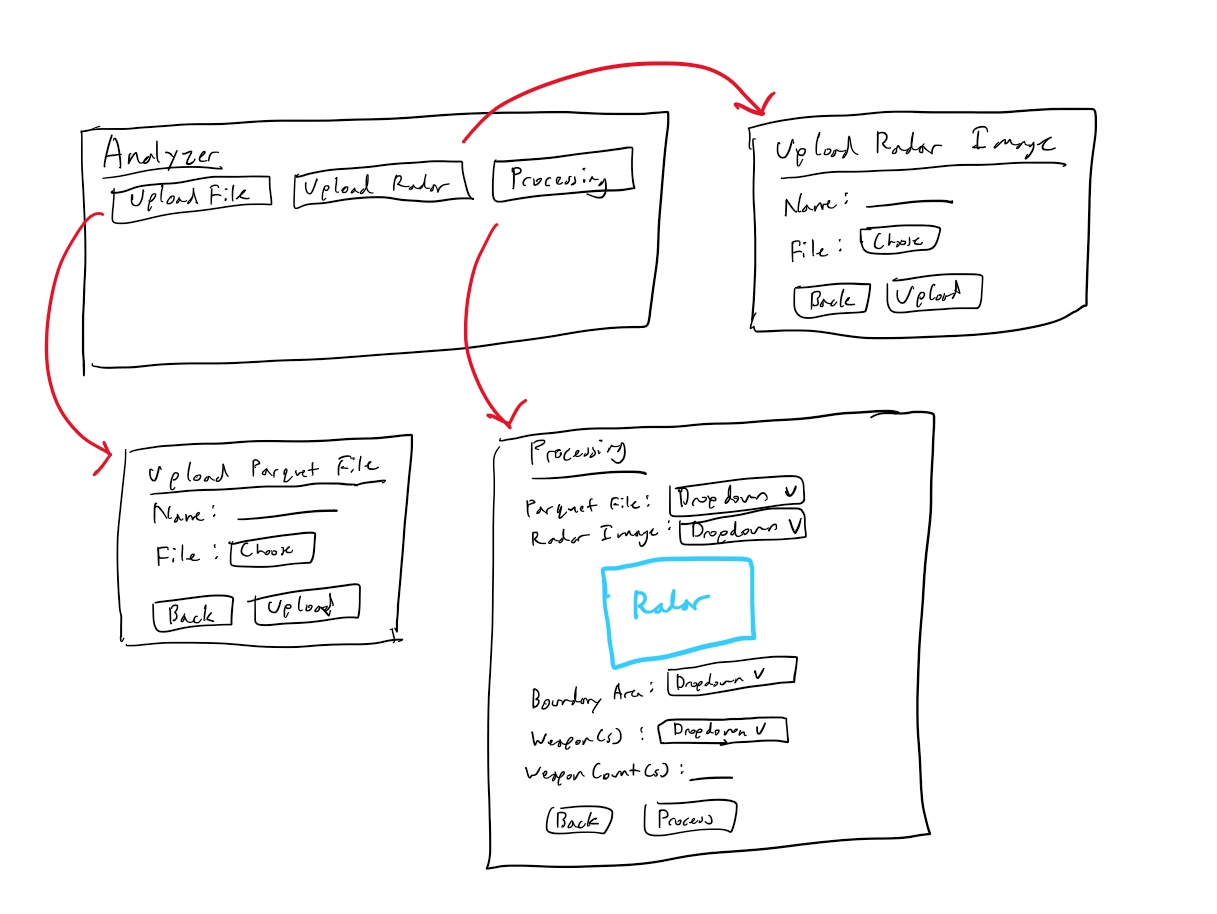 Analyzer
Upload File
Upload Radar
Processing
Upload Radar Image
Name:
File: Choose
Back Upload
Upload Parquet File
Name:
File: Choose
Back Upload
Processing
Parquet File: Dropdown V
Radar Image: Dropdown V
Radar
Boundary Area: Dropdown V
Weapon(s): Dropdown V
Weapon Count(s):
Back Process